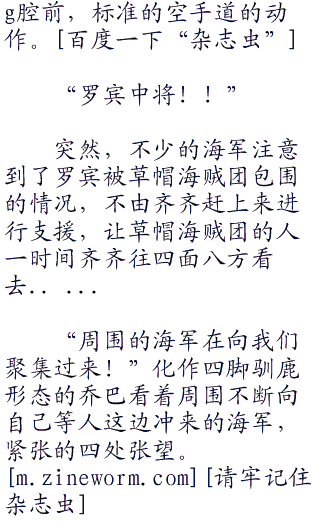 g腔前，标准的空手道的动
作。[百度一下“杂志虫”]
“罗宾中将！！”
突然，不少的海军注意
到了罗宾被草帽海贼团包围
的情况，不由齐齐赶上来进
行支援，让草帽海贼团的人
一时间齐齐往四面八方看
去.. ...
“周围的海军在向我们
聚集过来！”化作四脚驯鹿
形态的乔巴看着周围不断向
自己等人这边冲来的海军，
紧张的四处张望。
[m.zineworm.com][请牢记住
杂志虫]